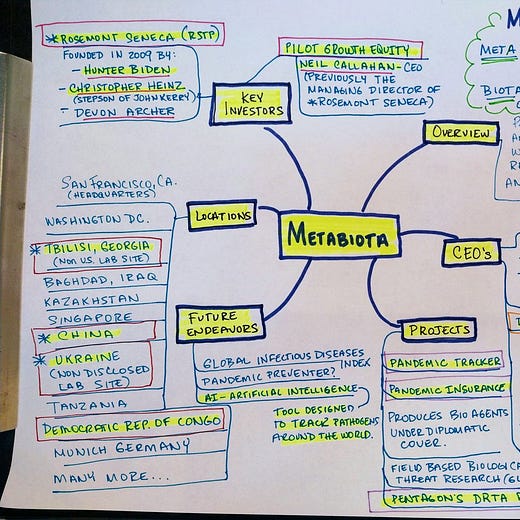 * ROSEMONT SENECA (RSTP)
FOUNDED IN 2009 BY:
- HUNTER BIDEN
- CHRISTOPHER HEINZ
(STEPSON OF JOHN KERRY)
- DEVON ARCHER
KEY
INVESTORS
PILOT GROWTH EQUITY
NEIL CALLAHAN - CEO
(PREVIOUSLY THE
MANAGING DIRECTOR OF
* ROSEMONT SENECA)
META
BIOTA
OVERVIEW
METABIOTA
LOCATIONS
SAN FRANCISCO, CA.
(HEADQUARTERS)
WASHINGTON DC.
* TBILISI, GEORGIA
(NON U.S. LAB SITE)
BAGHDAD, IRAQ
KAZAKHSTAN
SINGAPORE
* CHINA
* UKRAINE
(NON DISCLOSED
LAB SITE)
TANZANIA
DEMOCRATIC REP. OF CONGO
MUNICH GERMANY
MANY MORE...
CEO's
FUTURE
ENDEAVORS
GLOBAL INFECTIOUS DISEASES
INDEX
PANDEMIC PREVENTER?
AI - ARTIFICIAL INTELLIGENCE
TOOL DESIGNED
TO TRACK PATHOGENS
AROUND THE WORLD.
PROJECTS
PANDEMIC TRACKER
PANDEMIC INSURANCE
PRODUCES BIO AGENTS
UNDER DIPLOMATIC
COVER.
FIELD BASED BIOLOGICA
THREAT RESEARCH
PENTAGON'S DRTA